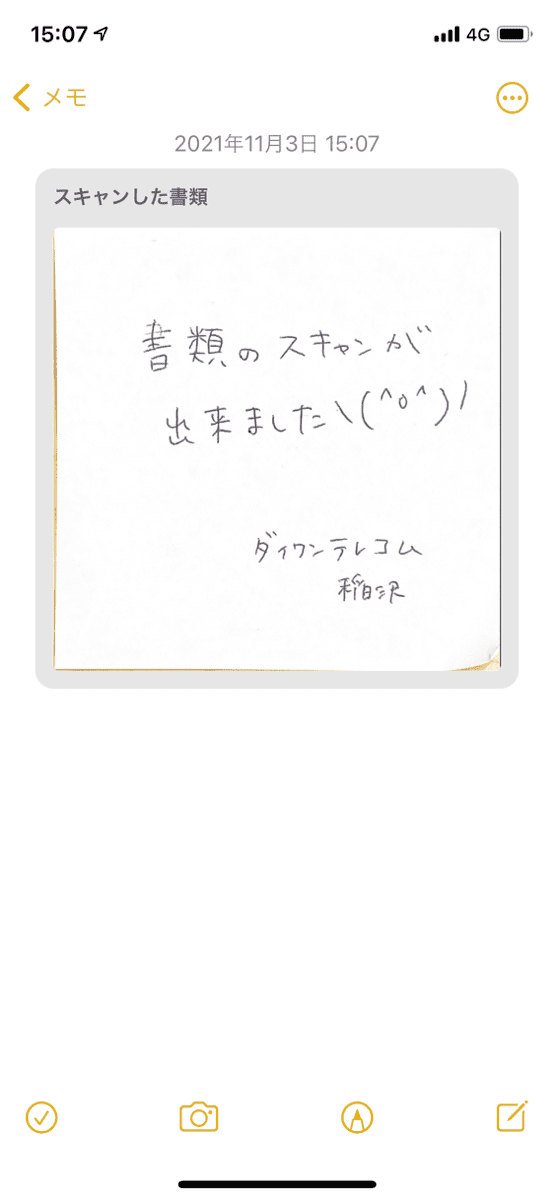 15:07
4G
メモ
2021年11月3日 15:07
スキャンした書類
書類のスキャンが
出来ました\(^o^)/
ダイワンテレコム
稲沢